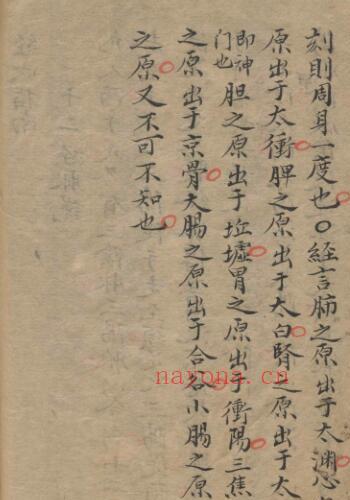 刻則周身一度也○經言肺之原出于太渊心
原出于太衝脾之原出于太白腎之原出于太
即神
門也胆之原出于坵墟胃之原出于衝陽三焦
之原出于京骨大腸之原出于合谷小腸之原
之原又不可不知也
nayona.cn